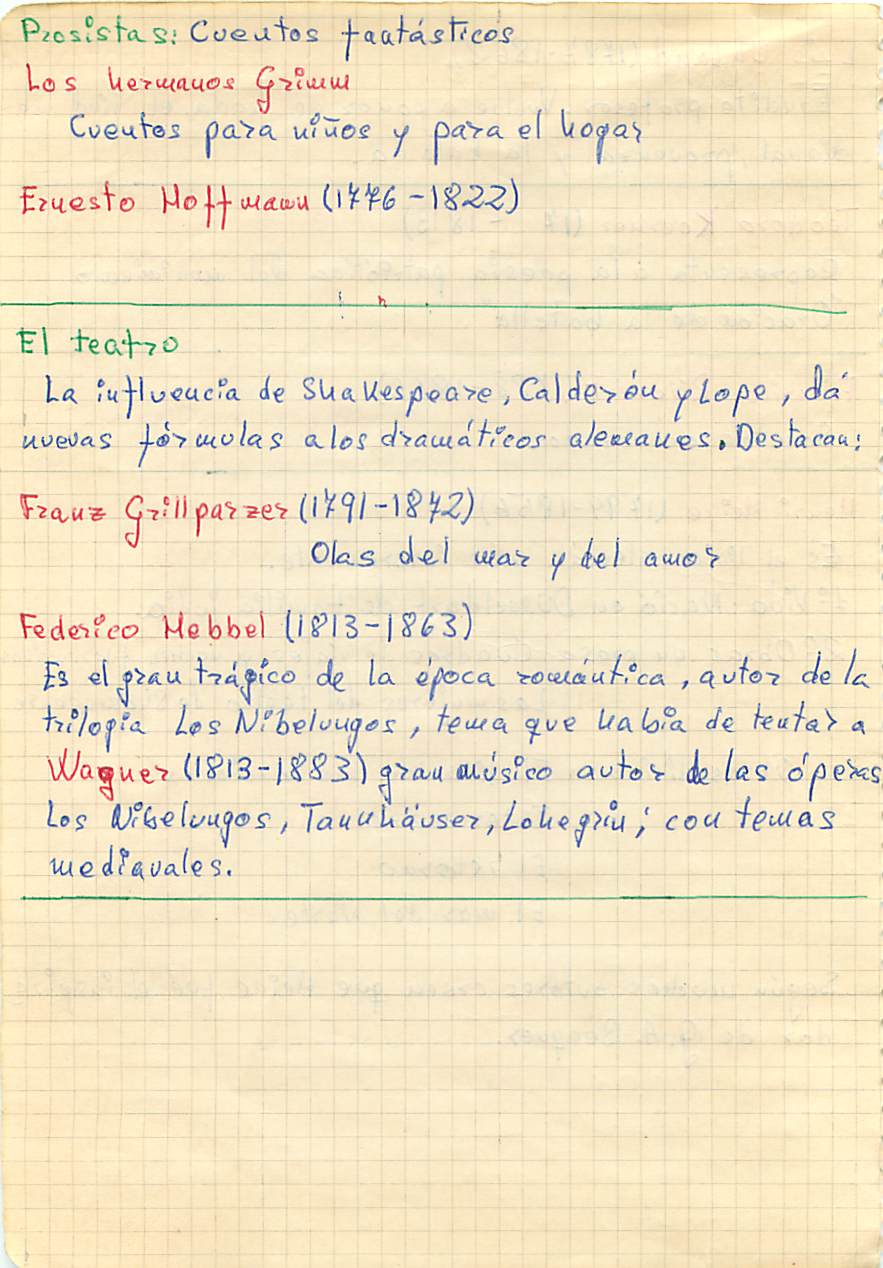 Prosistas: Cuentos fantásticos
Los hermanos Grimm
Cuentos para niños y para el hogar
Ernesto Hoffmann (1776-1822)
El teatro
La influencia de Shakespeare, Calderón y Lope, dá
nuevas fórmulas a los dramáticos alemanes. Destacan:
Franz Grillparzer (1791-1872)
Olas del mar y del amor
Federico Hebbel (1813-1863)
Es el gran trágico de la época romántica, autor de la
trilogía Los Nibelungos, tema que había de tentar a
Wagner (1813-1883) gran músico autor de las óperas
Los Nibelungos, Tannhäuser, Lohegrin; con temas
mediavales.